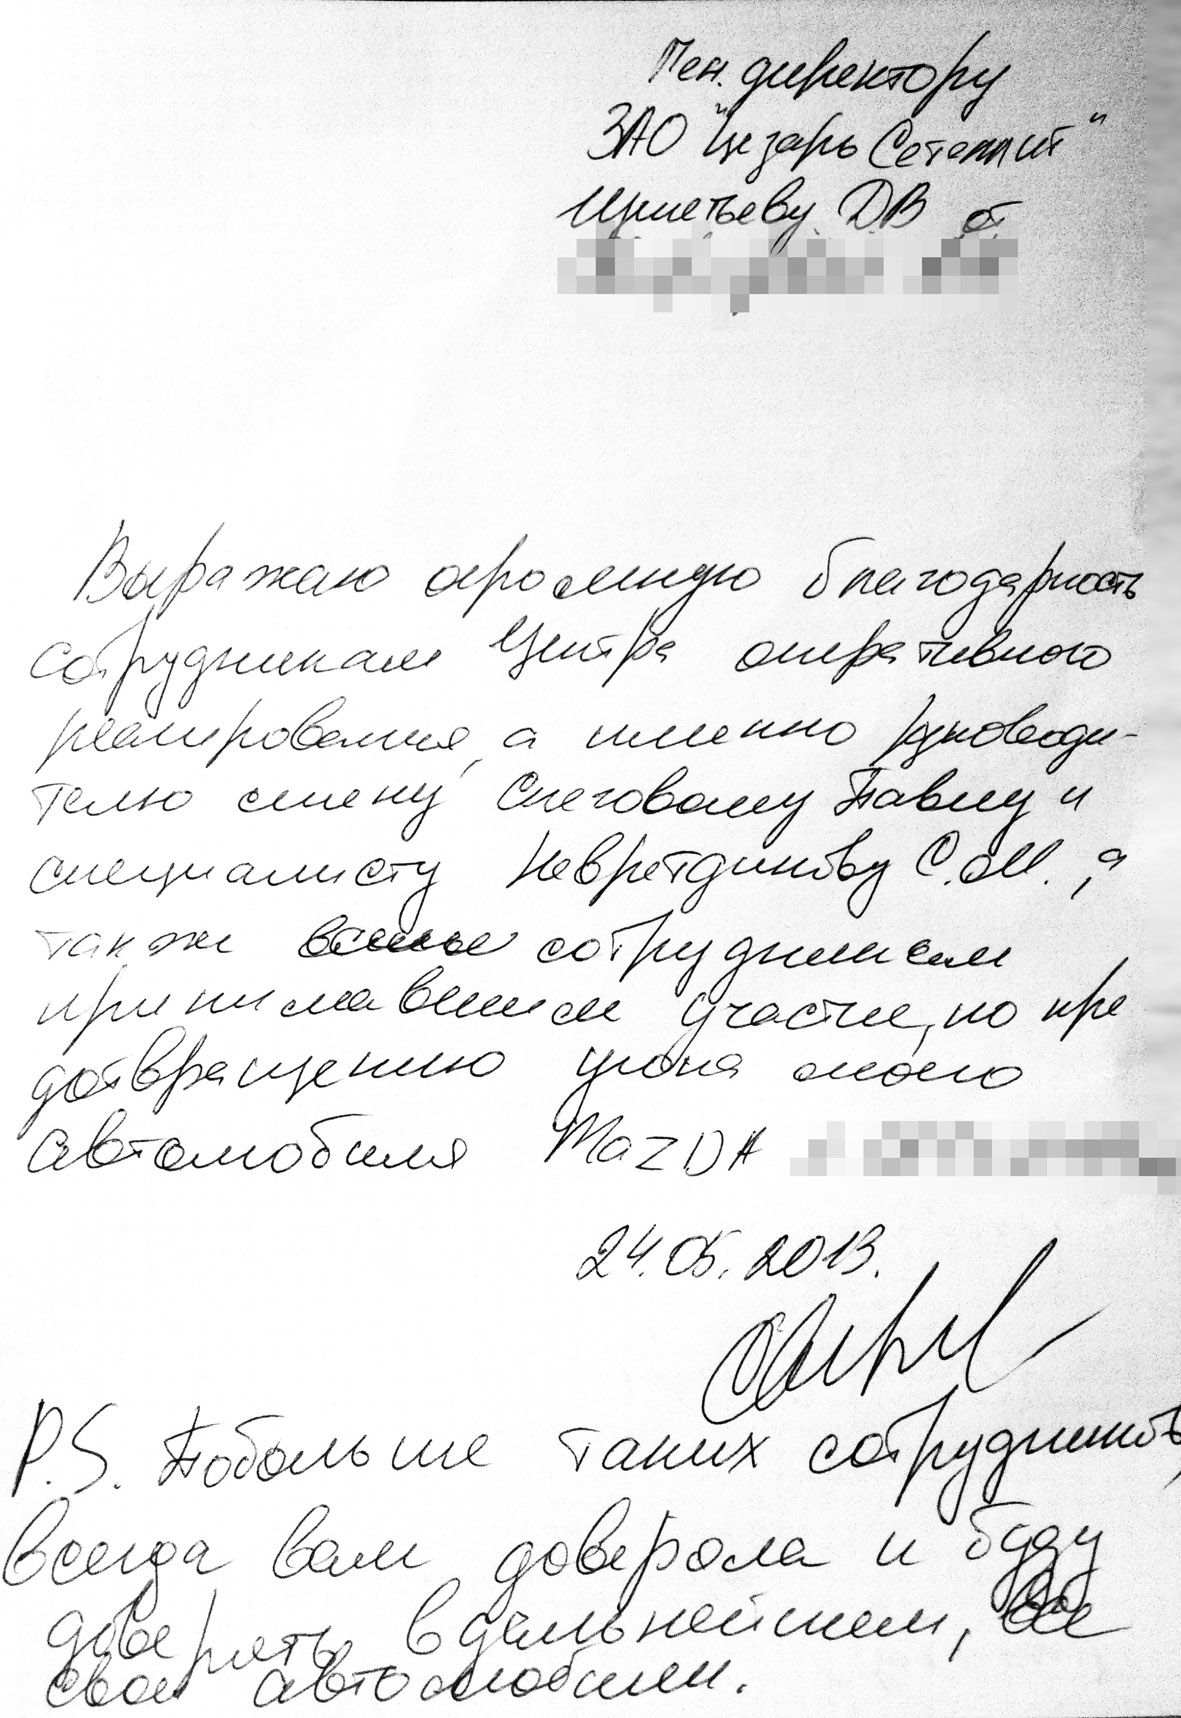 Ген. директору
ЗАО "Цезарь Сателлит"
ДВ от
Выражаю огромную благодарность
сотрудникам Центра оперативного
реагирования, а именно руководи-
телю смены Снеговому Павлу и
специалисту Невретдинову С.М., а
также всем сотрудникам
принимавшим участие, по пре
дотвращению угона моего
автомобиля MAZDA
24.05.2013.
P.S. Побольше таких сотрудников,
всегда вам доверяла и буду
доверять в дальнейшем, все
свои автомобили.